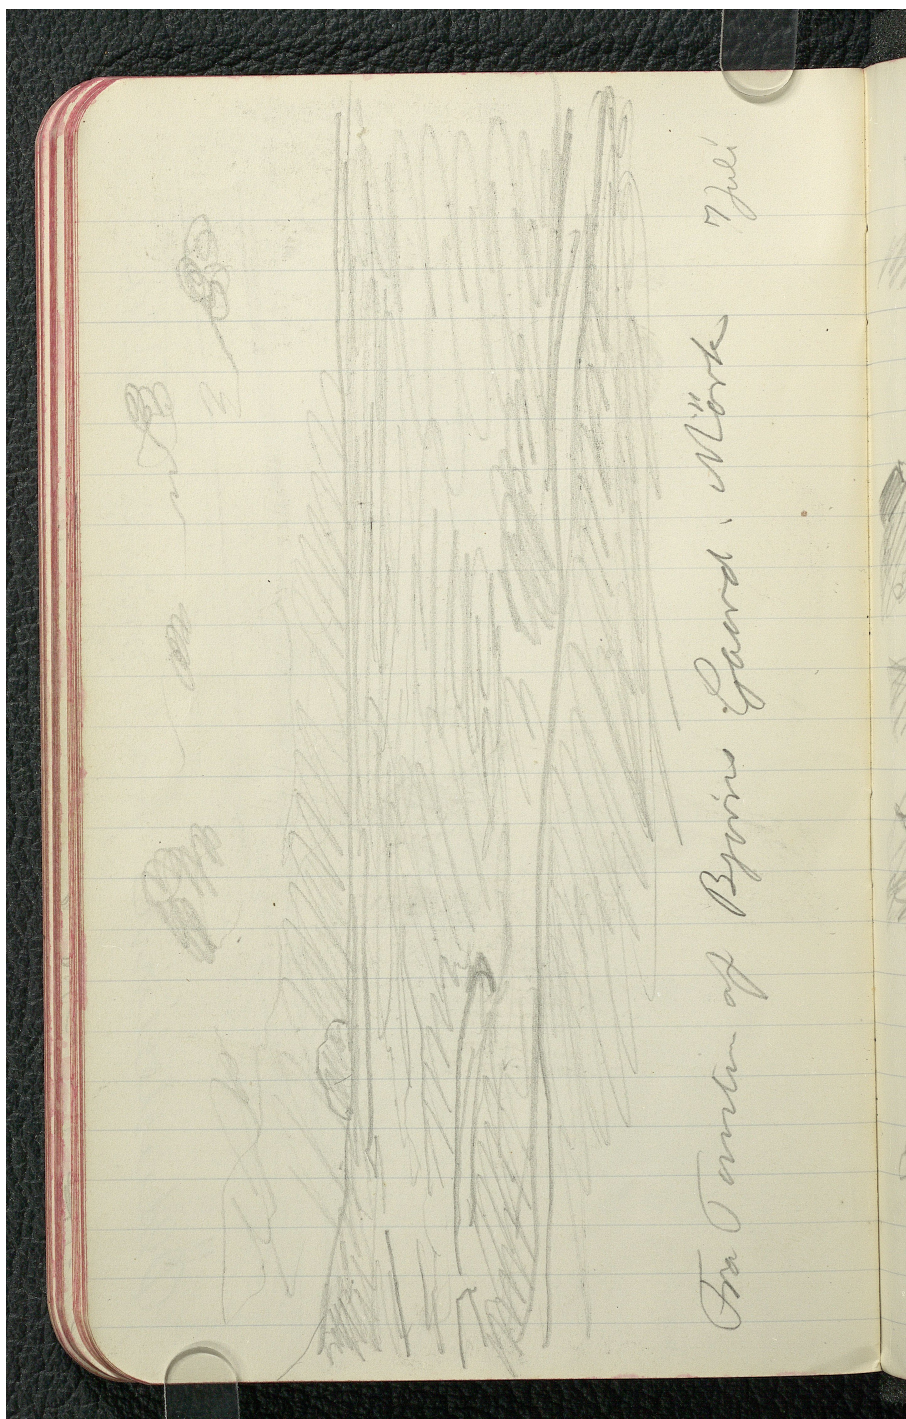 Fra Tomten af Björns Gaard. Mörk 7 Juli